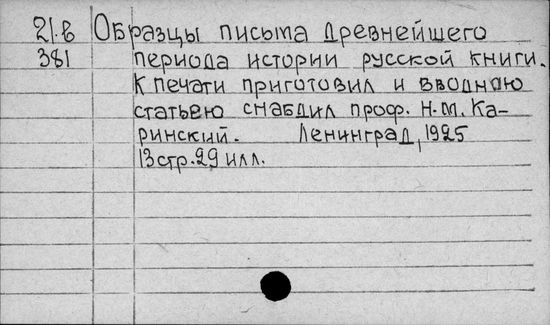 21.в Образцы письма древнейшего
381 периода истории русской книги.
К печати приготовил и вводною
статьею снабдил проф. Н.М. Ка-
ринский. Ленинград, 1925
13 стр. 29 илл.